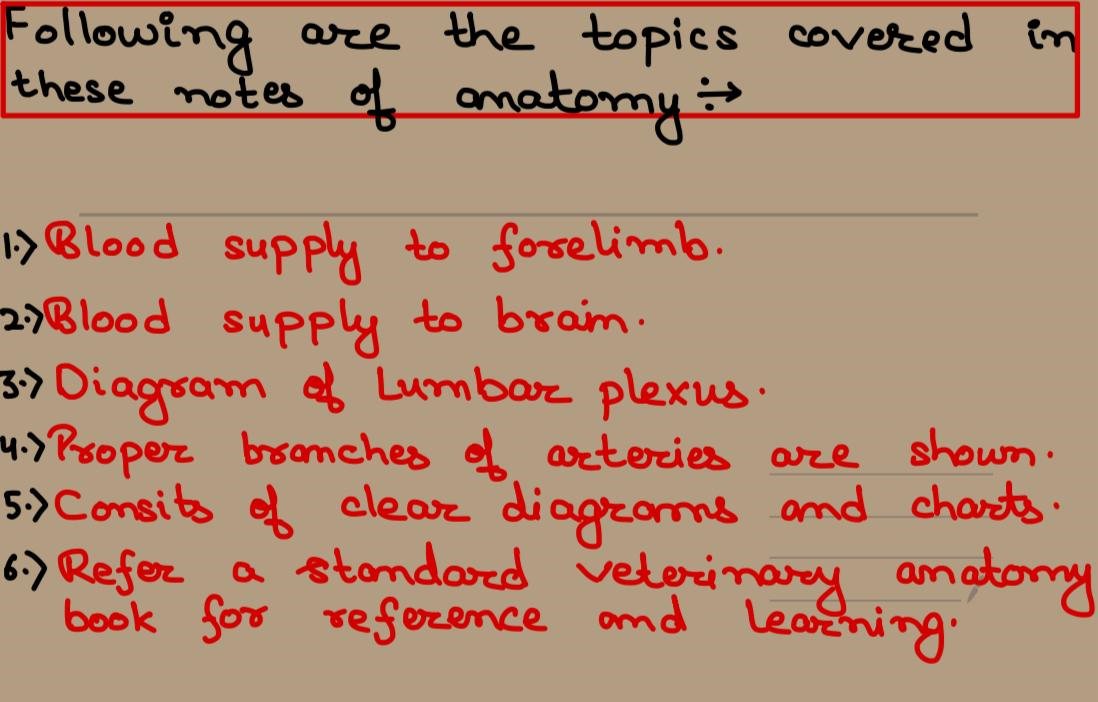 Following are the topics covered in
these notes of anatomy ÷→
1.) Blood supply to forelimb.
2.) Blood supply to brain.
3.) Diagram of Lumbar plexus.
4.) Proper branches of arteries are shown.
5.) Consits of clear diagrams and charts.
6.) Refer a standard veterinary anatomy
book for reference and learning.